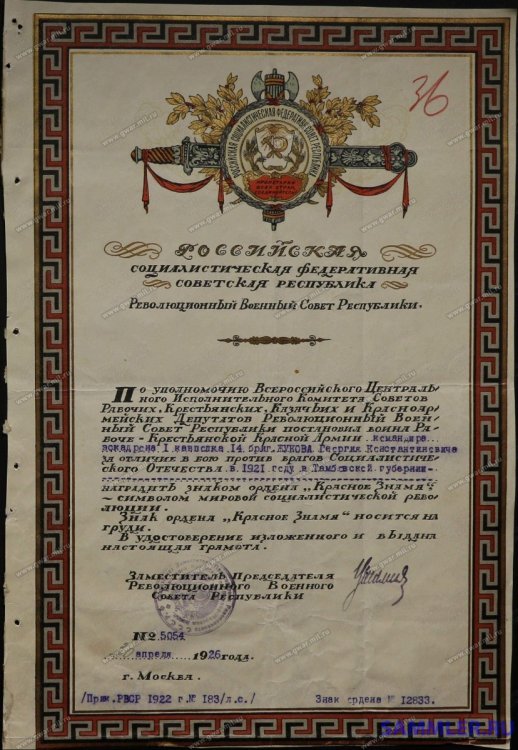 36
РОССИЙСКАЯ СОЦИАЛИСТИЧЕСКАЯ ФЕДЕРАТИВН. СОВЕТ. РЕСПУБЛИКА
ПРОЛЕТАРИИ
ВСЕХ СТРАН,
РОССИЙСКАЯ
СОЦИАЛИСТИЧЕСКАЯ ФЕДЕРАТИВНАЯ
СОВЕТСКАЯ РЕСПУБЛИКА
РЕВОЛЮЦИОННЫЙ ВОЕННЫЙ СОВЕТ РЕСПУБЛИКИ.
По уполномочию Всероссийского Централь-
ного Исполнительного Комитета Советов
Рабочих, Крестьянских, Казачьих и Красноар-
мейских Депутатов Революционный Воен-
ный Совет Республики постановил воина Ра-
боче-Крестьянской Красной Армии командира
эскадрона 1 кавполка 14.бриг. ЖУКОВА Георгия Константиновича
за отличие в бою против врагов Социалистиче-
ского Отечества в 1921 году в Тамбовской губернии
наградить знаком ордена „Красное Знамя"
- символом мировой социалистической рево-
люции.
Знак ордена „Красное Знамя" носится на
груди.
В удостоверение изложенного и выдана
настоящая грамота.
Заместитель Председателя
Революционного Военного
Совета Республики
№ 5054
апреля 1926 года.
г. Москва.
/Прик. РВСР 1922 г.№ 183/л.с./ Знак ордена № 12833.
www.gwar.mil.ru
SAMMLER.RU